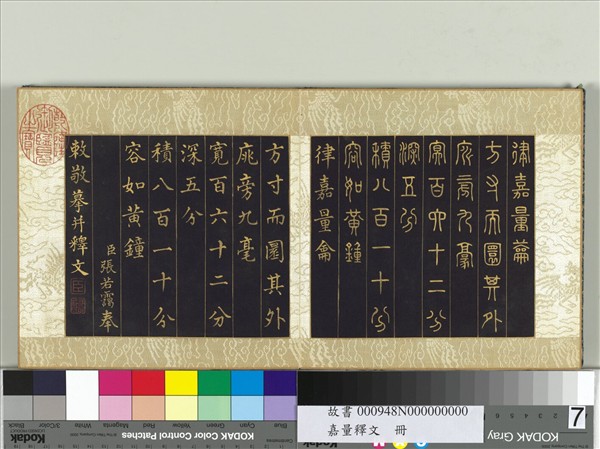 律嘉量籥
方寸而圜其外
庣旁九豪
冥百六十二分
深五分
積八百一十分
容如黃鐘
律嘉量龠
方寸而圜其外
庣旁九毫
百六十二分
深五分
積八百一十分
容如黃鐘
臣張若靄奉
敕敬摹并釋文
故書 000948N000000000
嘉量釋文 冊
7
Blue
Cyan
Green
Yellow
Red
Magenta
White
3/Color
Black
KODAK Color Control Patches
Kodak
KODAK Gray